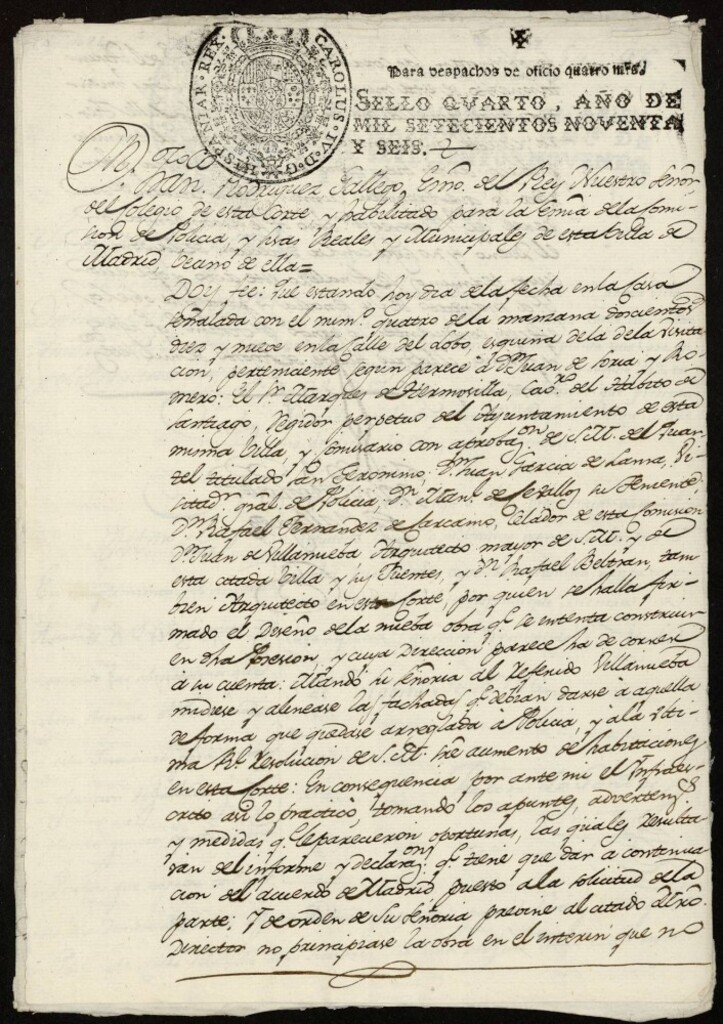 CAROLUS·IV·D·G·HISPANIAR·REX·
Para despachos de oficio quatro mrs.
SELLO QVARTO, AÑO DE
MIL SETECIENTOS NOVENTA
Y SEIS.
Rodriguez Gallego, Esno. del Rey Nuestro Señor
del Colegio de esta Corte, y habilitado para la Esnia dela Comi-
sion de Policia, y Visas Reales y Municipales de esta Villa de
Madrid, Decano de ella=
Doy fee: Que estando hoy dia dela fecha en la Casa
señalada con el numo. quatro dela manzana doscientos
diez y nuece en la Calle del Lobo, esquina de la dela Visita
cion, perteneciente, segun parece á Dn. Juan de Soria y Ro-
mero: El Sr. Marques de Hermosilla, Cavro. del Habito de
Santiago, Regidor perpetuo del Ayuntamiento de esta
misma Villa, y Comisario con aprobazon. de S.M. del Quar-
tel titulado San Geronimo: Dn. Juan Garcia de Lama, Vi-
sitadr. gral. de Policia; Dn. Man. de Sevallos su Teniente;
Dn. Rafael Fernandez de Carcamo, Celador de esta Comision
Dn. Juan de Villanueba Arquitecto mayor de S.M. y de
esta citada Villa y sus Fuentes, y Dn. Rafael Beltran, tam
bien Arquitecto en esta Corte, por quien se halla fir-
mado el Diseño dela nueba obra qe. se intenta construir
en dha Posesion, y cuya Direccion parece ha de correr
á su cuenta: Mandó su Señoria al referido Villanueba
midiese y alinease las fachadas qe. debian darse á aquella
de forma que quedase arreglada á Policia, y á la ulti-
ma Rl. resolucion de S.M. sre aumento de habitaciones
en esta Corte: En consequencia por ante mi el Infraes-
crito asi lo practicó, tomando los apuntes, advertencs.
y medidas qe. le parecieron oportunas, las quales resulta-
ran del informe y declarazon. qe. tiene que dar á continua
cion del acuerdo de Madrid puesto á la solicitud de la
parte; Y de orden de Su Señoria previne al citado Mro.
Director no principiase la obra en el interin que no